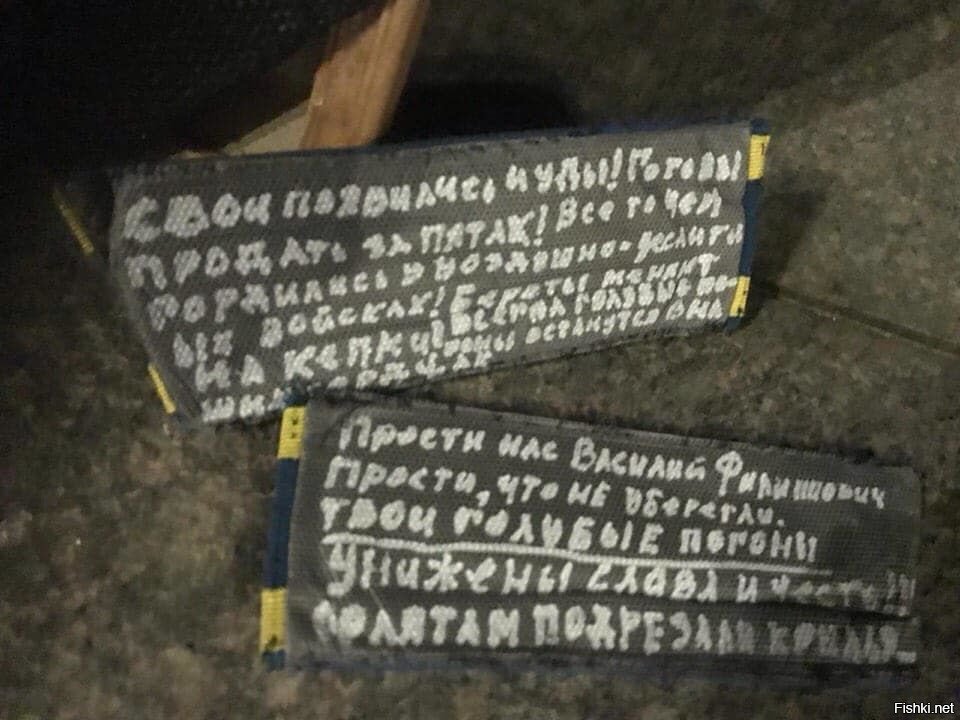 Свои появились иуды! Готовы
продать за пятак! Все то чем
гордились в воздушно-десантн
ых войсках! Береты меняют
на кепки! Всегда голубые по-
гоны останутся в на
ших сердцах
Прости нас Василий Филиппович
Прости, что не уберегли.
твои голубые погоны
Унижены слава и честь!!!
орлятам подрезали крылья...
Fishki.net